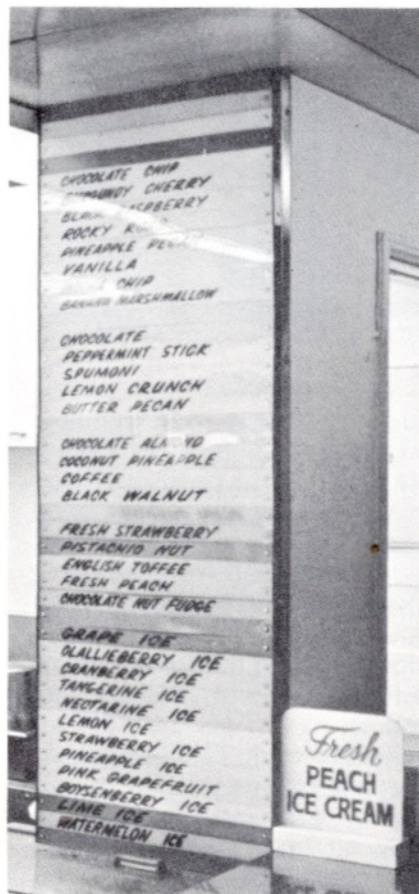 CHOCOLATE CHIP
BURGUNDY CHERRY
BLACK RASPBERRY
ROCKY ROAD
PINEAPPLE PECAN
VANILLA
CHIP
BANANA MARSHMALLOW
CHOCOLATE
PEPPERMINT STICK
SPUMONI
LEMON CRUNCH
BUTTER PECAN
CHOCOLATE ALMOND
COCONUT PINEAPPLE
COFFEE
BLACK WALNUT
FRESH STRAWBERRY
PISTACHIO NUT
ENGLISH TOFFEE
FRESH PEACH
CHOCOLATE NUT FUDGE
GRAPE ICE
OLALLIEBERRY ICE
CRANBERRY ICE
TANGERINE ICE
NECTARINE ICE
LEMON ICE
STRAWBERRY ICE
PINEAPPLE ICE
PINK GRAPEFRUIT
BOYSENBERRY ICE
LIME ICE
WATERMELON ICE
Fresh
PEACH
ICE CREAM